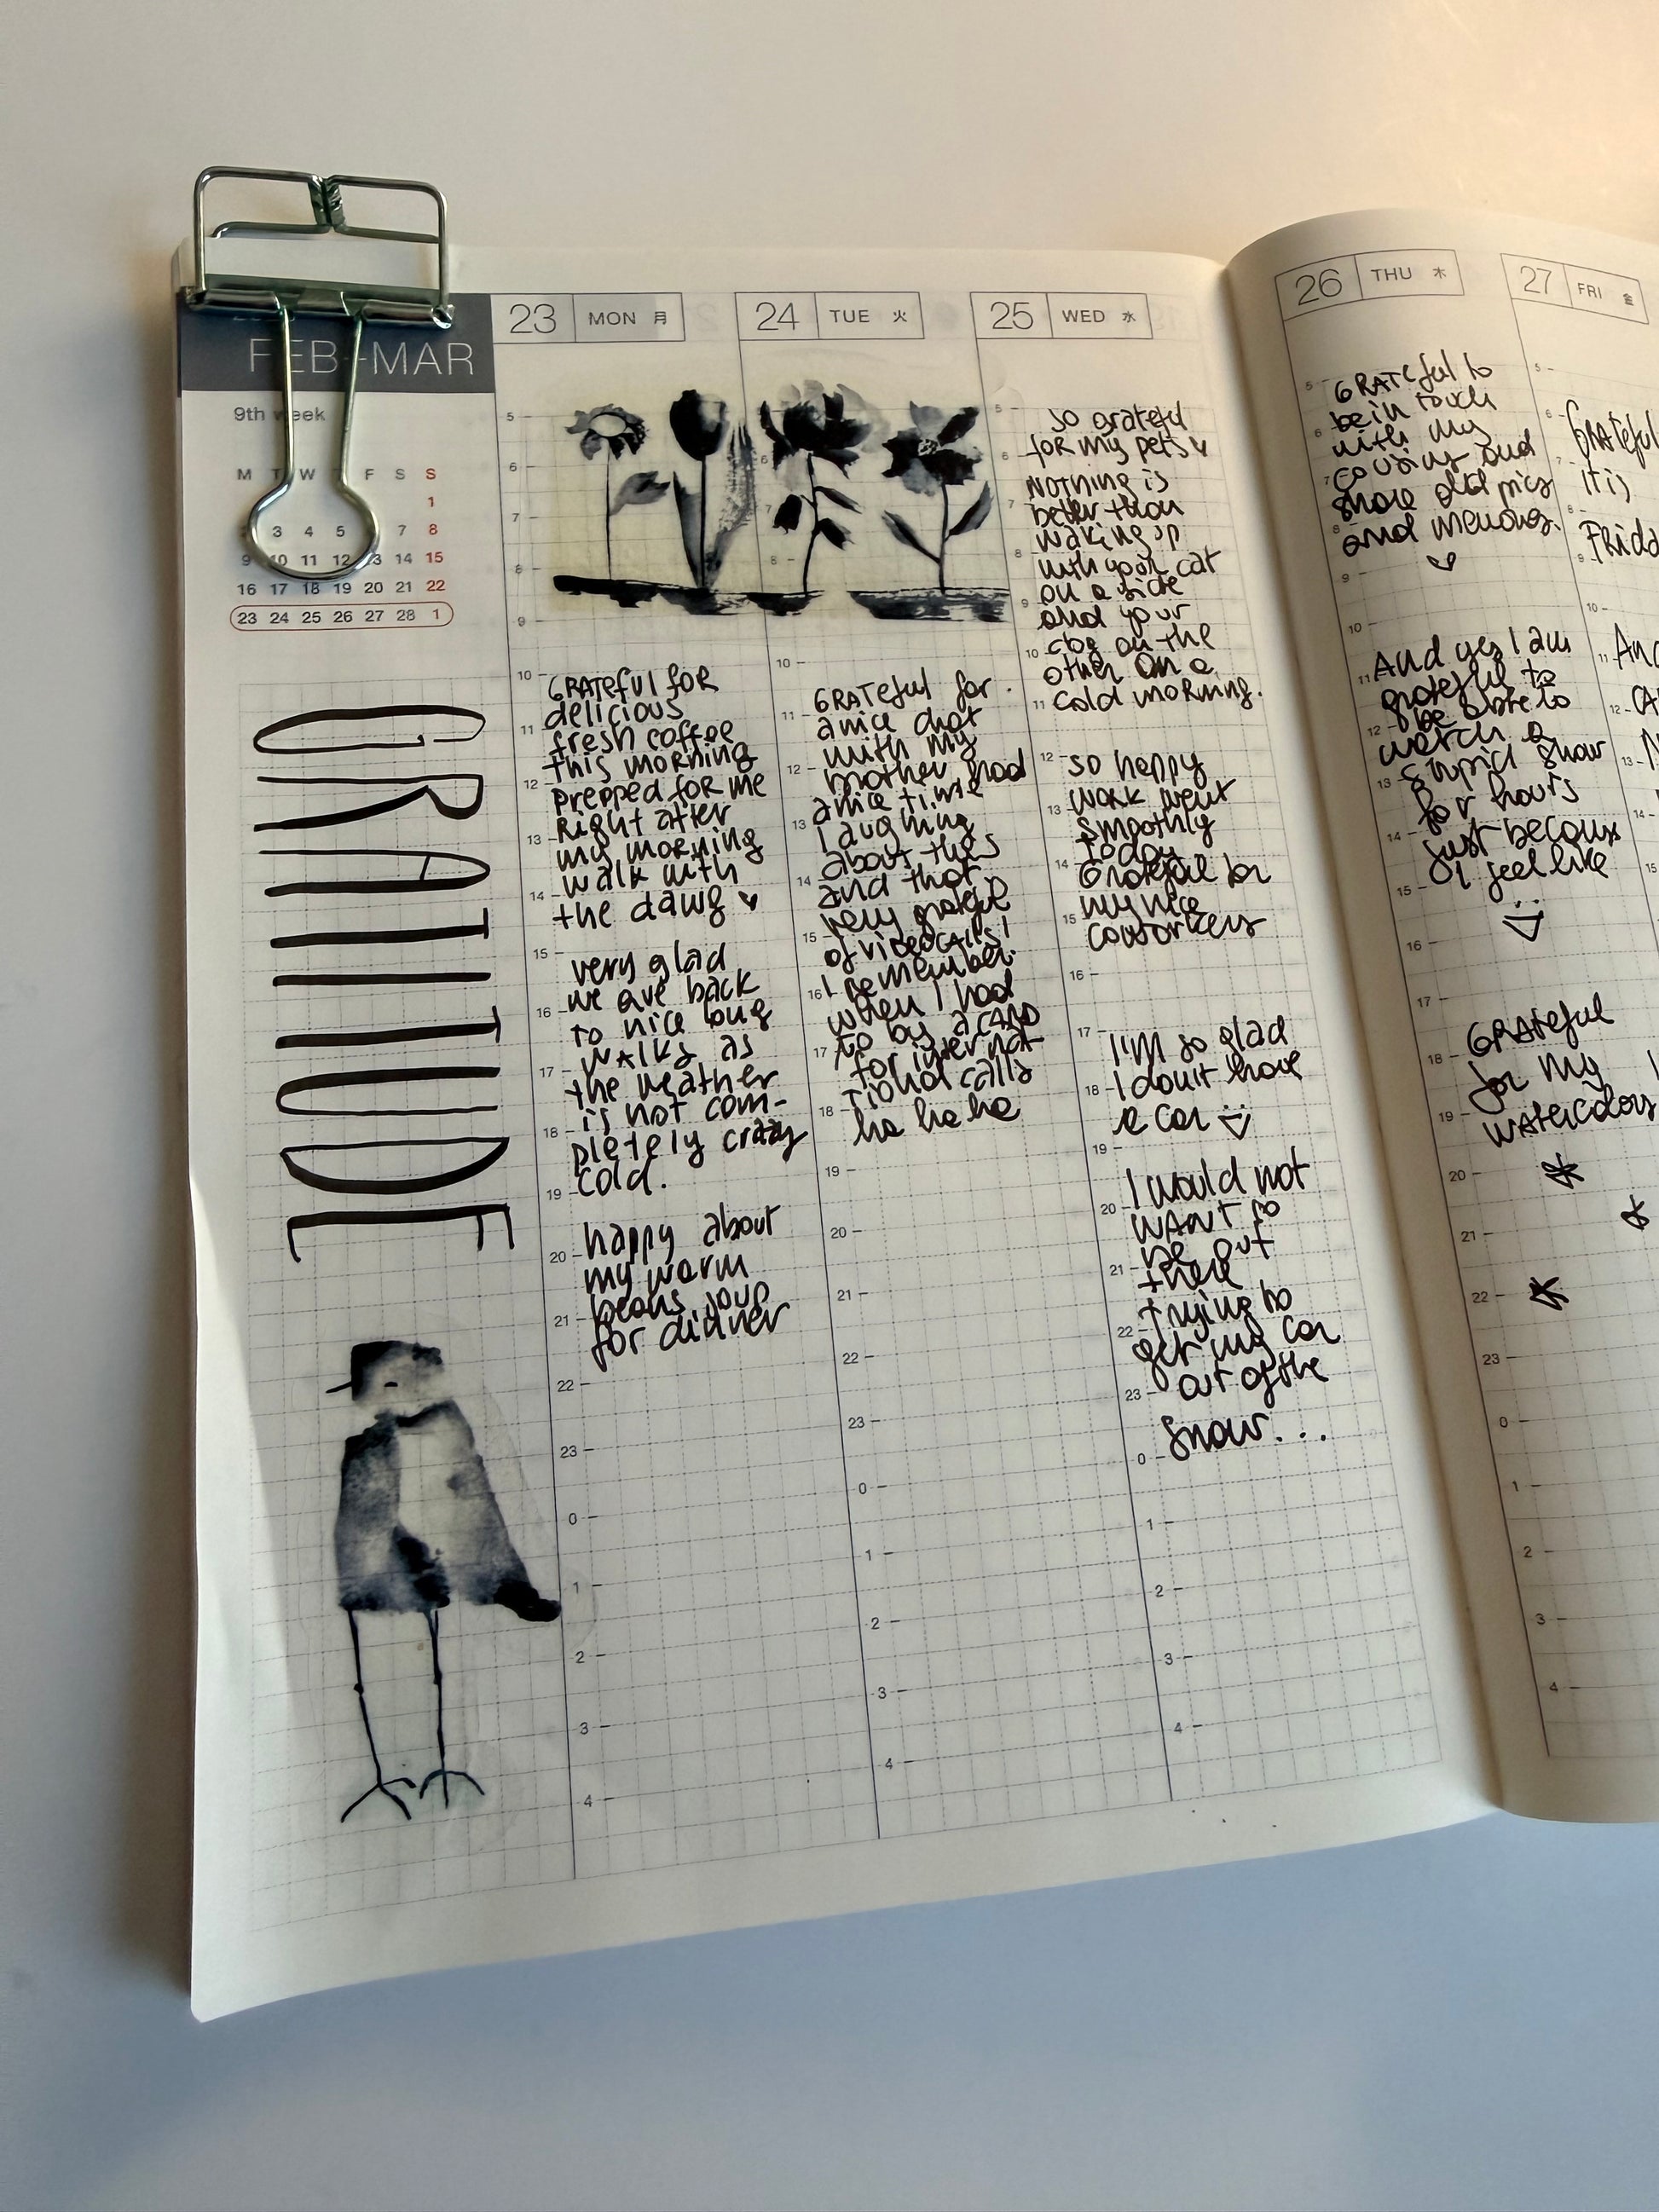 FEB-MAR
9th week
M T W F S S
1
3 4 5 7 8
9 10 11 12 13 14 15
16 17 18 19 20 21 22
23 24 25 26 27 28 1
GRATITUDE
23 MON 月
5
6
7
8
9
10
11
12
13
14
15
16
17
18
19
20
21
22
23
0
1
2
3
4
GRATEFUL FOR
delicious
fresh coffee
this morning
prepped for me
Right after
my morning
walk with
the dawg ♥
very glad
we are back
to nice long
WALKS as
the weather
is not com-
pletely crazy
cold.
happy about
my warm
beans soup
for dinner
24 TUE 火
6
7
8
10
11
12
13
14
15
16
17
18
19
20
21
22
23
0
1
2
3
4
GRATEFUL for
a nice chat
with my
brother, had
a nice time
laughing
about this
and that
very grateful
of videocalls!
I remember
when I had
to by a CARD
for internat-
ional calls
ha ha ha
25 WED 水
5
6
7
8
9
10
11
12
13
14
15
16
17
18
19
20
21
22
23
0
1
2
3
4
so grateful
for my pets ♥
NOTHING is
better than
waking up
with your cat
on a side
and your
dog on the
other on a
cold morning.
so happy
work went
smoothly
today
Grateful for
my nice
coworkers
I'm so glad
I don't have
a car
I would not
WANT to
be out
there
trying to
get my car
out of the
snow...
26 THU 木
5
6
7
8
9
10
11
12
13
14
15
16
17
18
19
20
21
22
23
0
1
2
3
4
GRATEFUL to
be in touch
with my
cousins and
share old pics
and memories.
And yes I am
grateful to
be able to
watch a
stupid show
for hours
just because
I feel like
GRATEFUL
for my
WATERCOLORS
27 FRI 金
5
6
7
8
9
10
11
12
13
14
15
Grateful
it is
FRIDA